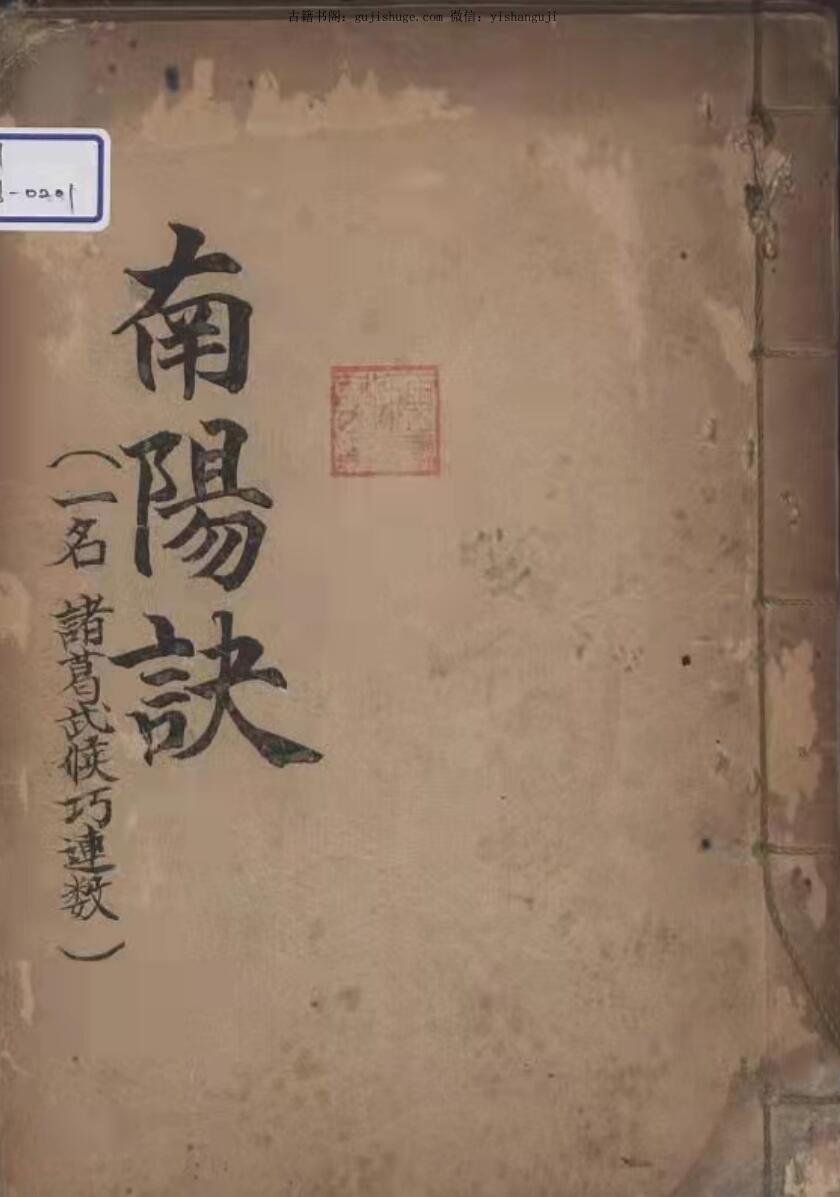 古籍书阁：gujishuge.com 微信：yishanguji
-0201
南陽訣
（一名 諸葛武候巧連数）